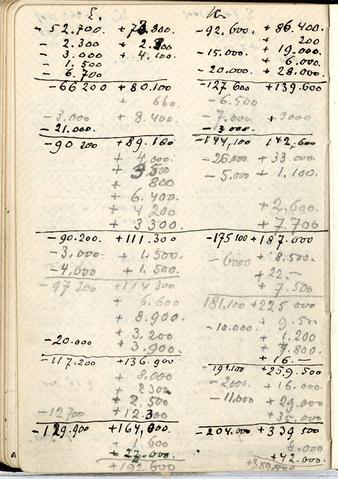 £. K.
- 52.700. + 73.300. - 92.600. + 86.400.
- 2.300 + 2.300 + 200
- 3.000 + 4.100. - 15.000. + 19.000.
- 1.500 + 6.000.
- 6.700 - 20.000. + 28.000.
- 66 200 + 80.100 - 127 600 + 139.600
+ 660. - 6.500
- 3.000 + 8.400. - 7.000 + 3000
- 21.000. - 3.000.
- 90 200 + 89.160 - 144,100 142,600
+ 4.000. - 26.000 + 33.000.
+ 3,500 - 5.000 + 1.100.
+ 800
+ 6.400.
+ 4 200 + 2.600.
+ 3.300 + 7.700
- 90.200. + 111.300 - 175 100 + 187.000
- 3,000. + 1.500. - 6000 + 8.500.
- 4,000 + 1.500. + 22.-
- 97 200 + 114 300 + 7.500
+ 6.600 181.100 + 225 000
+ 8.900. - 10.000.
+ 3.200 + 1.200
- 20.000 + 3.900. + 7.800
- 117.200 + 136 900 + 16.-
+ 8.000 - 191.100 + 259.500
+ 2300 - 2000. + 16.000.
+ 2,500 - 11.000 + 29.000
- 12700 + 12.300 + 35,000
- 129.900 + 164,000 - 204.000 + 339 500
+ 1,600 6.000
+ 27.000. + 42.000.
+ 192 600